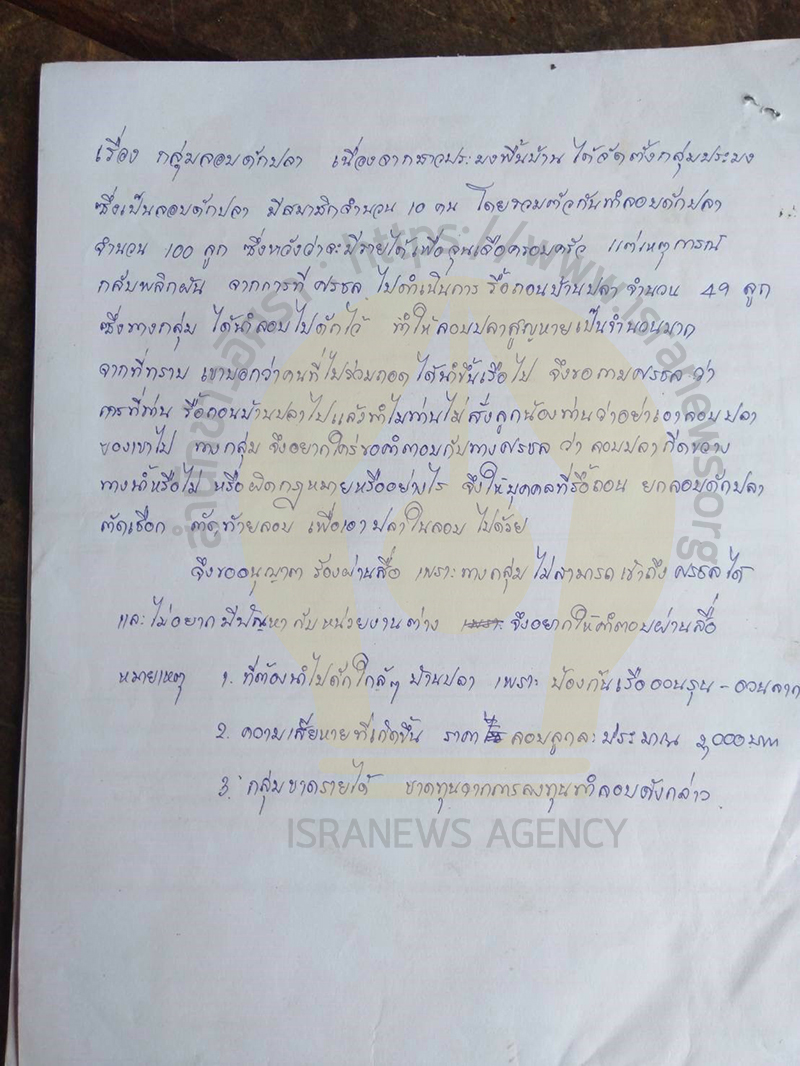 เรื่อง กลุ่มลอบดักปลา เนื่องจากชาวประมงพื้นบ้าน ได้จัดตั้งกลุ่มประมง
ซึ่งเป็นลอบดักปลา มีสมาชิกจำนวน 10 คน โดยรวมตัวกันทำลอบดักปลา
จำนวน 100 ลูก ซึ่งหวังว่าจะมีรายได้เพื่อจุนเจือครอบครัว แต่เหตุการณ์
กลับพลิกผัน จากการที่ ศรชล ไปดำเนินการ รื้อถอนบ้านปลา จำนวน 49 ลูก
ซึ่งทางกลุ่ม ได้นำลอบไปดักไว้ ทำให้ลอบปลาสูญหายเป็นจำนวนมาก
จากที่ทราบ เขาบอกว่าคนที่ไปร่วมถอด ได้นำขึ้นเรือไป จึงขอถามศรชล ว่า
การที่ท่าน รื้อถอนบ้านปลาไปแล้วทำไมท่านไม่สั่งลูกน้องท่านว่าอย่าเอาลอบปลา
ของเขาไป ทางกลุ่ม จึงอยากใคร่ขอคำตอบกับทางศรชล ว่า ลอบปลากีดขวาง
ทางน้ำหรือไม่ หรือผิดกฎหมายหรืออย่างไร จึงให้บุคคลที่รื้อถอน ยกลอบดักปลา
ตัดเชือก ตัดท้ายลอบ เพื่อเอาปลาในลอบ ไปด้วย
จึงขออนุญาต ร้องผ่านสื่อ เพราะทางกลุ่ม ไม่สามารถเข้าถึง ศรชล ได้
และไม่อยากมีปัญหากับหน่วยงานต่าง จึงอยากให้คำตอบผ่านสื่อ
หมายเหตุ 1. ที่ต้องนำไปดักใกล้ๆ บ้านปลา เพราะ ป้องกันเรืออวนรุน - อวนลาก
2. ความเสียหายที่เกิดขึ้น ราคา ลอบลูกละ ประมาณ 2,000 บาท
3. กลุ่มขาดรายได้ ขาดทุนจากการลงทุนทำลอบดังกล่าว
สำนักข่าวอิศรา : https://www.isranews.org
ISRANEWS AGENCY